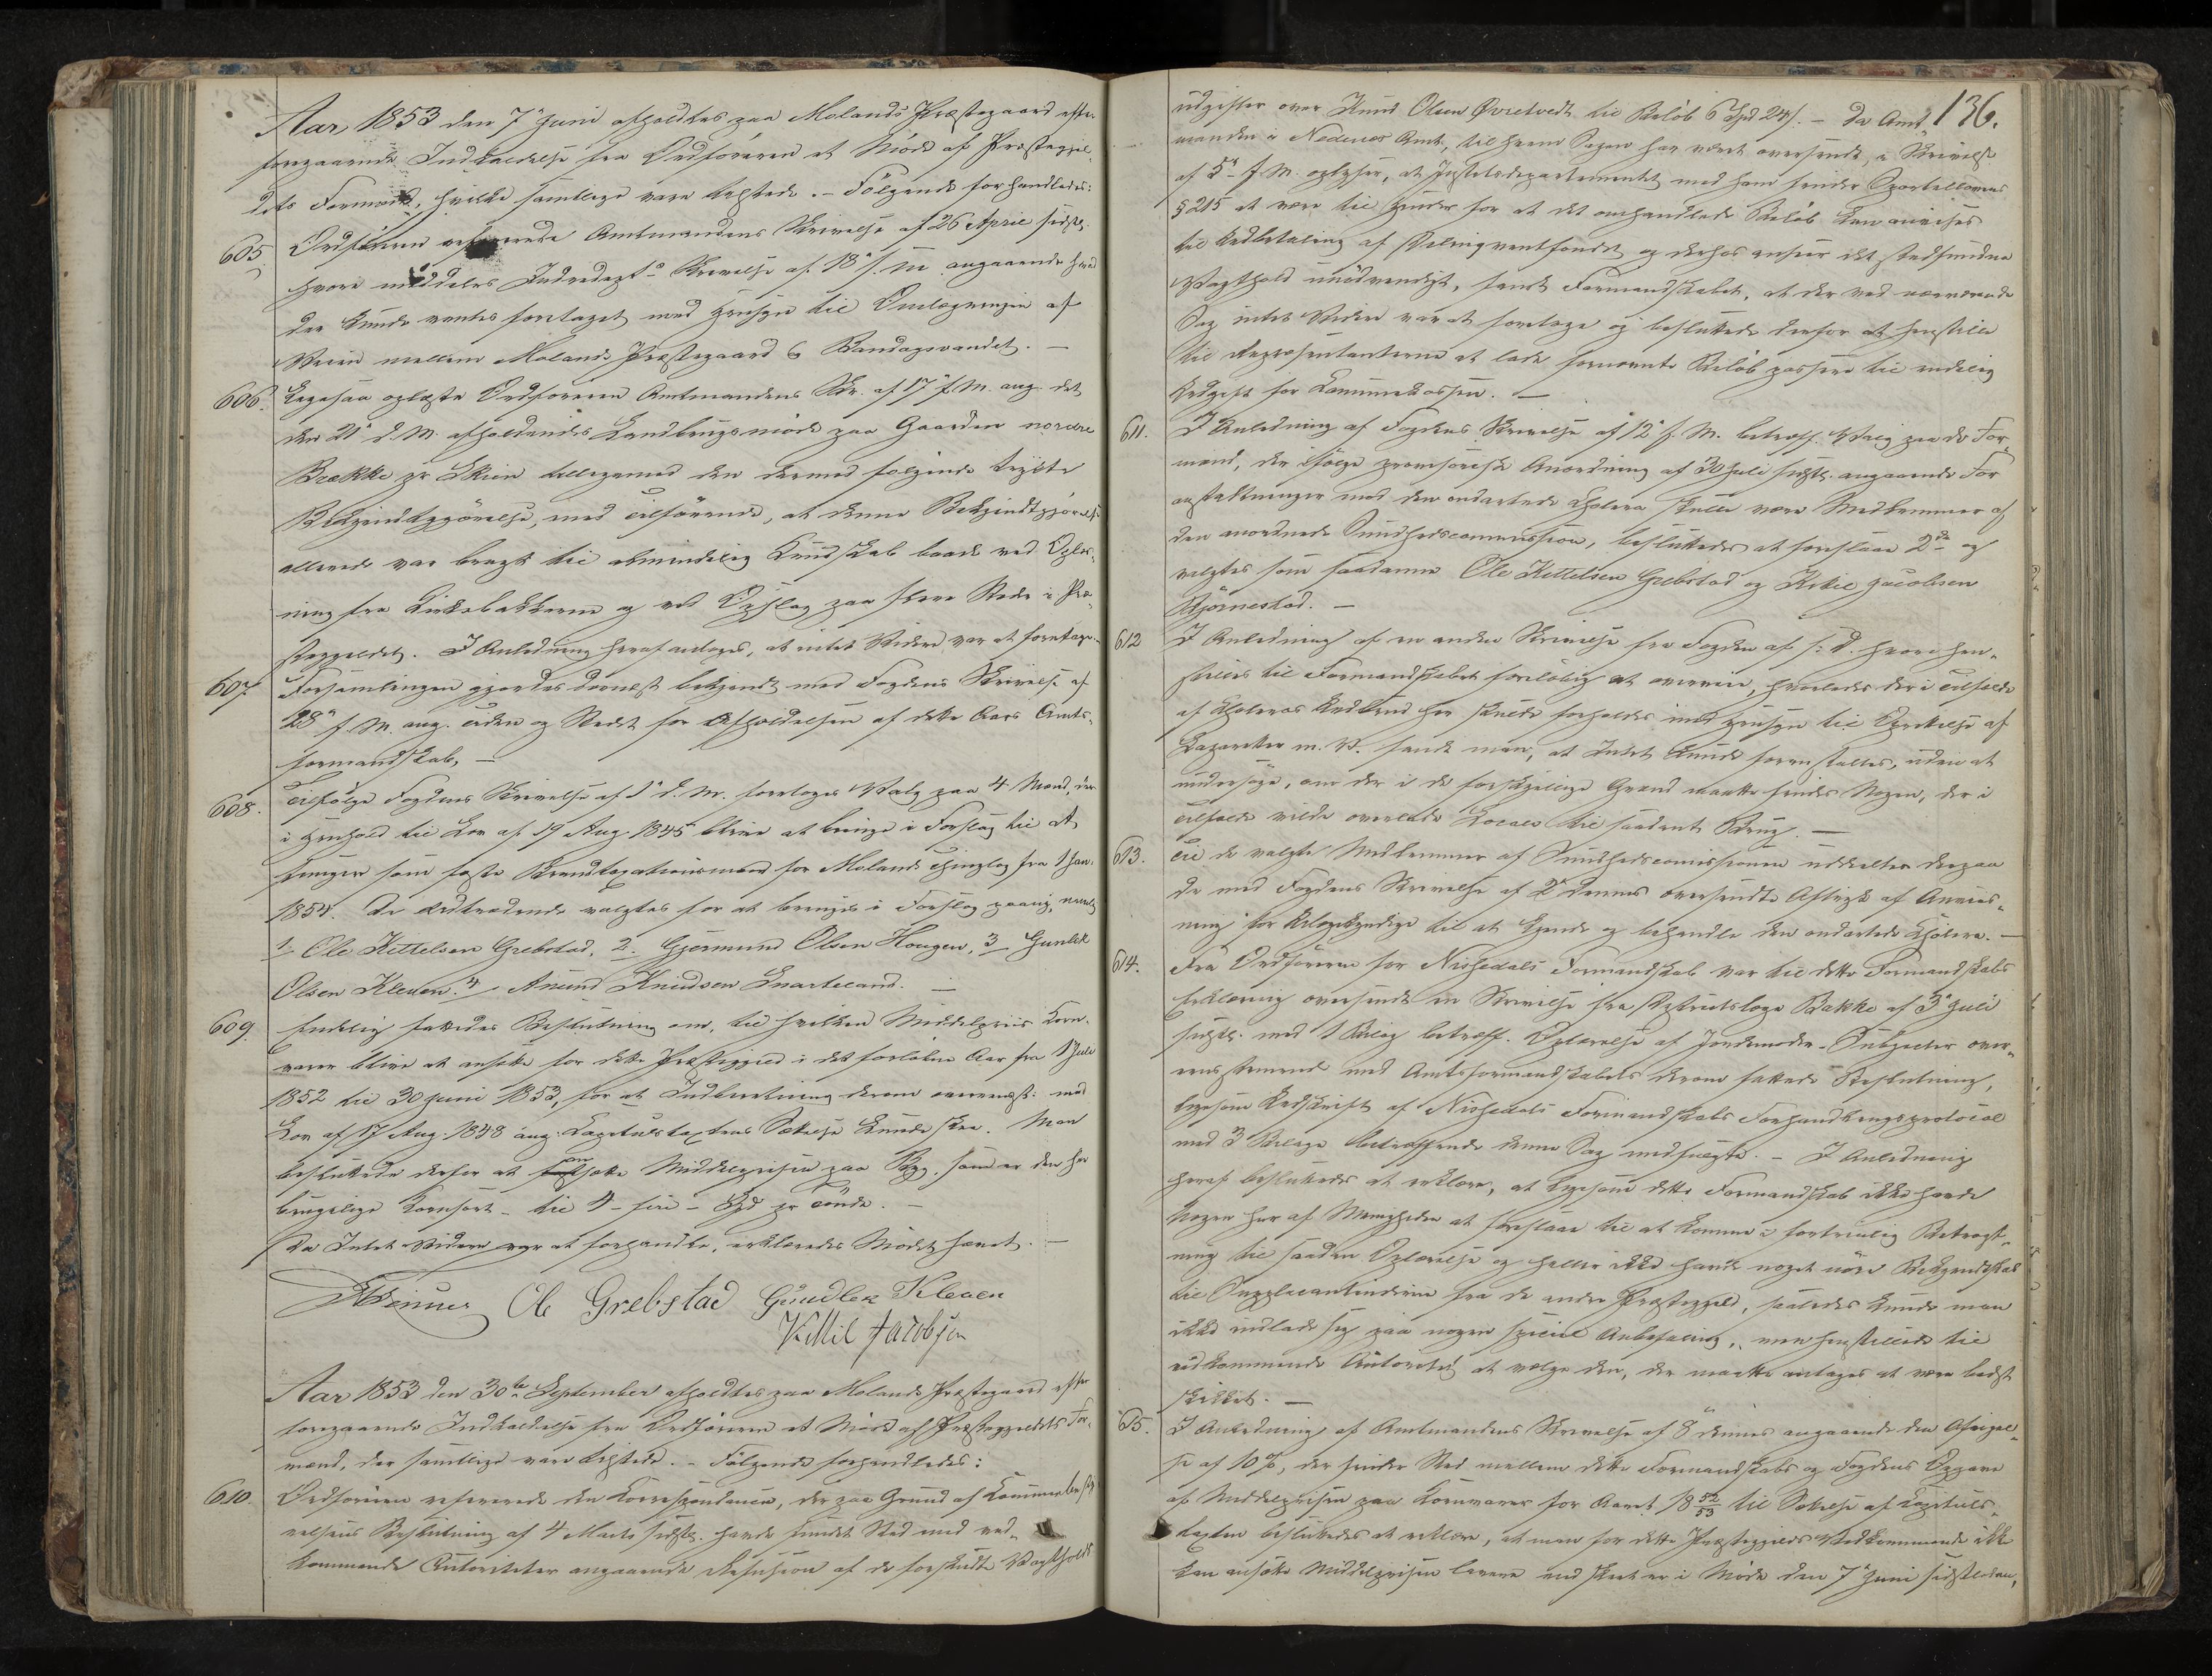 Aar 1853 den 7de Juni afholdtes paa Molands Præstegaard efter
foregaaende Indkaldelse fra Ordføreren et Møde af Præstegjel-
dets Formænd, hvilke samtlige vare tilstede. – Følgende forhandledes:
605. Ordføreren refererede Amtmandens Skrivelse af 26 April sidstl.
hvori meddeles Indredepts Skrivelse af 18de s. M. angaaende hvad
der kunde ventes foretaget med Hensyn til Omlægningen af
Veien mellem Molands Præstegaard & Bandagsvandet. –
606. Ligesaa oplæste Ordføreren Amtmandens Skr. af 17de f. M. ang. det
den 21de d. M. afholdendes Landbrugsmøde paa Gaarden nordre
Brække pr Skien tilligemed den dermed følgende trykte
Bekjendtgjørelse, med Tilføiende, at denne Bekjendtgjørelse
allerede var bragt til almindelig Kundskab baade ved Oplæs-
ning fra Kirkebakkerne og ved Opslag paa flere Steder i Præ-
stegjeldet. I Anledning heraf antoges, at intet Videre var at foretage. –
607. Forsamlingen gjordes dernæst bekjendt med Fogdens Skrivelse af
28de f. M. ang. Tiden og Stedet for Afholdelsen af dette Aars Amts-
formandskab, –
608. Tilfølge Fogdens Skrivelse af 1ste d. M. foretoges Valg paa 4 Mænd, der
i Henhold til Lov af 19 Aug. 1845 blive at bringe i Forslag til A
som faste Brandtaxationsmænd for Molands Thinglag fra 1 Jan.
1854. De Udtrædende valgtes for at bringes i Forslag paany, nemlig
1. Ole Kittelsen Grebstad, 2. Gjermund Olsen Haugen, 3 Gunlek
Olsen Kleven. 4, Anund Knudsen Snarteland. –
609. Endelig fattedes Beslutning om, til hvilken Middelpris Korn-
varer blive at ansætte for dette Præstegjeld i det forløbne Aar fra 1 Juli
1852 til 30 Juni 1853, for at Indberetning derom overensst. med
Lov af 17 Aug. 1848 ang. Capitulstaxtens Sættelse kunde skee. Man
besluttede derfor at ansætte Middelprisen paa Byg. som er den her
brugelige Kornsort – til 4 – fire – Spd pr Tønde. –
Da Intet Videre var at forhandle, erklæredes Mødet hævet. –
Ole Grebstad Gundlek Kleven
Kittil Jacobsen
Aar 1853 den 30te September afholdtes paa Molands Præstegaard efter
foregaaende Indkaldelse fra Ordføreren et Møde af Præstegjeldets For-
mænd, der samtlige vare tilstede. – Følgende forhandledes:
610. Ordføreren refererede den Correspondence, der paa Grund af Communebesty-
relsens Beslutning af 4 Marts sidstl. havde fundet Sted med ved-
kommende Autoriteter angaaende Refusion af de forskudte Vagtholds-
136.
udgifter over Knud Olsen Øvretvedt til Beløb 6 Spd 24 s. – Da Amt-
manden i Nedenes Amt, til hvem Sagen har været oversendt, i Skrivelse
af 5te f. M. oplyser, at Justitsdepartementet med ham finder Sportellovens
§ 215 at være til Hinder for at det omhandlede Beløb kan anvises
til Udbetaling af Delinqventfondet og derhos anseer det stedfundne
Vagthold unødvendigt, fandt Formandskabet, at der ved nærværende
Sag intet Videre var at foretage og besluttede derfor at henstille
til Repræsentanterne at lade fornævnte Beløb passere til endelig
Udgift for Communekassen. –
611. I Anledning af Fogdens Skrivelse af 12te f. M. betræff. Valg paa de For-
mænd, der ifølge provisorisk Anordning af 30 Juli sidstl. angaaende For-
anstaltninger mod den ondartede Cholera skulle være Medlemmer af
den anordnede Sundhedscommission, besluttedes at foreslaae 2de og
valgtes som saadanne Ole Kittelsen Grebstad og Kittil Jacobsen
Bjørnestad. –
612 I Anledning af en anden Skrivelse fra Fogden af s. D. hvori hen-
stilles til Formandskabet foreløbig at overveie, hvorledes der i Tilfælde
af Choleras Udbrud her skulde forholdes med Hensyn til Oprettelse af
Lazarether m. V. fandt man, at Intet kunde foranstaltes, uden at
undersøge, om der i de forskjellige Grænd maatte findes Nogen, der i
Tilfælde vilde overlade Locale til saadant Brug. –
613. Til de valgte Medlemmer af Sundhedscomissionen uddeltes derpaa
de med Fogdens Skrivelse af 2den dennes oversendte Aftryk af Anvis-
ning for Ulægekyndige til at kjende og behandle den ondartede Cholera. –
614. Fra Ordføreren for Nissedals Formandskab var til dette Formandskabs
Erklæring oversendt en Skrivelse fra Distriktslæge Bakke af 3de Juli
sidstl. med 1 Bilag betræff. Oplærelse af Jordemoder-Subjecter over-
eensstemmende med Amtsformandskabets derom fattede Beslutning,
ligesom Udskrift af Nissedals Formandskabs Forhandlingsprotocol
med 3 Bilage betræffende denne Sag medfulgte. – I Anledning
heraf besluttedes at erklære, at ligesom dette Formandskab ikke havde
Nogen her af Menigheden at foreslaae til at komme i fortrinlig Betragt-
ning til saadan Oplærelse og heller ikke havde noget nøie Bekjendtskab
til Supplicantinderne fra de andre Præstegjeld, saaledes kunde man
ikke indlade sig paa nogen speciel Anbefaling, men henstillede til
vedkommende Autoritet at vælge den, der maatte antages at være bedst
skikket. –
615. I Anledning af Amtmandens Skrivelse af 8de dennes angaaende den Afvigel-
se af 10 %, der finder Sted mellem dette Formandskabs og Fogdens Opgave
af Middelprisen paa Kornvarer for Aaret 18 52/53 til Sættelse af Capituls-
taxten besluttedes at erklære, at man for dette Præstegjelds Vedkommende ikke
kan ansætte Middelprisen lavere end skeet er i Møde den 7de Juni sidstleden,